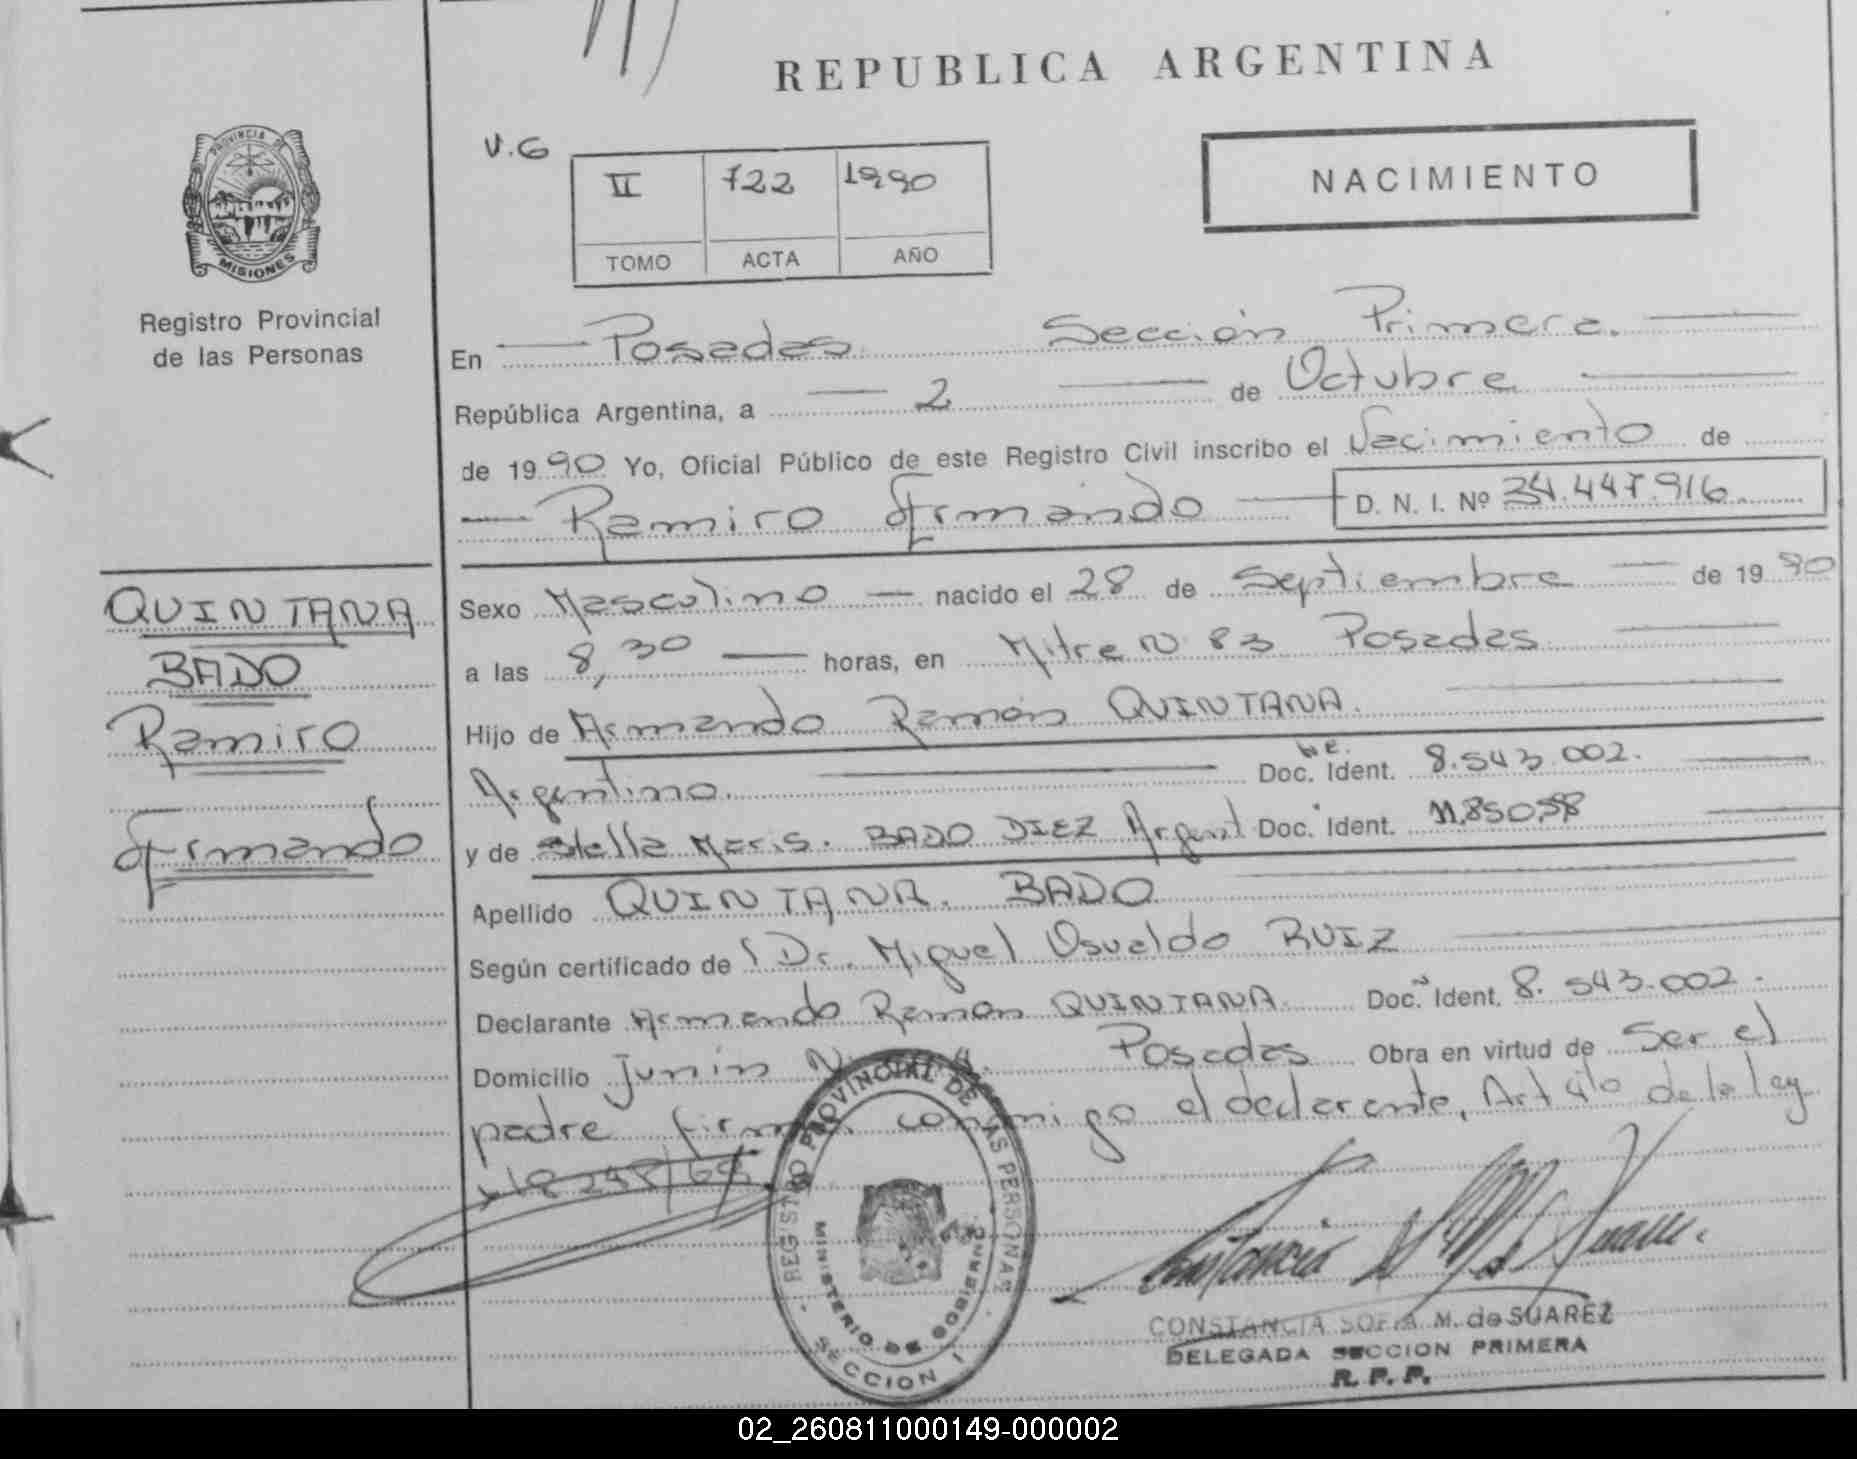 REPUBLICA ARGENTINA
V.G
II 722 1990
TOMO ACTA AÑO
NACIMIENTO
PROVINCIA DE
MISIONES
Registro Provincial
de las Personas
En Posadas Sección Primera.
República Argentina, a 2 de Octubre
de 1990 Yo, Oficial Público de este Registro Civil inscribo el Nacimiento de
Ramiro Armando D. N. I. Nº 34.447.916
QUINTANA
BADO
Ramiro
Armando
Sexo Masculino nacido el 28 de Septiembre de 1990
a las 8,30 horas, en Mitre N 83 Posadas
Hijo de Armando Ramón QUINTANA.
Argentino. Doc. Ident. 8.543.002.
y de Stella Maris. BADO DIEZ Argent Doc. Ident.
Apellido QUINTANA. BADO
Según certificado de Dr. Miguel Osvaldo RUIZ
Declarante Armando Ramon QUINTANA Doc. Ident. 8.543.002.
Domicilio Junin Posadas Obra en virtud de Ser el
padre firma conmigo el declarante, Art de la ley
18248/69
REGISTRO PROVINCIAL DE LAS PERSONAS
MINISTERIO DE GOBIERNO
SECCION 1
CONSTANCIA SOFIA M. de SUAREZ
DELEGADA SECCION PRIMERA
R. P. P.
02_260811000149-000002